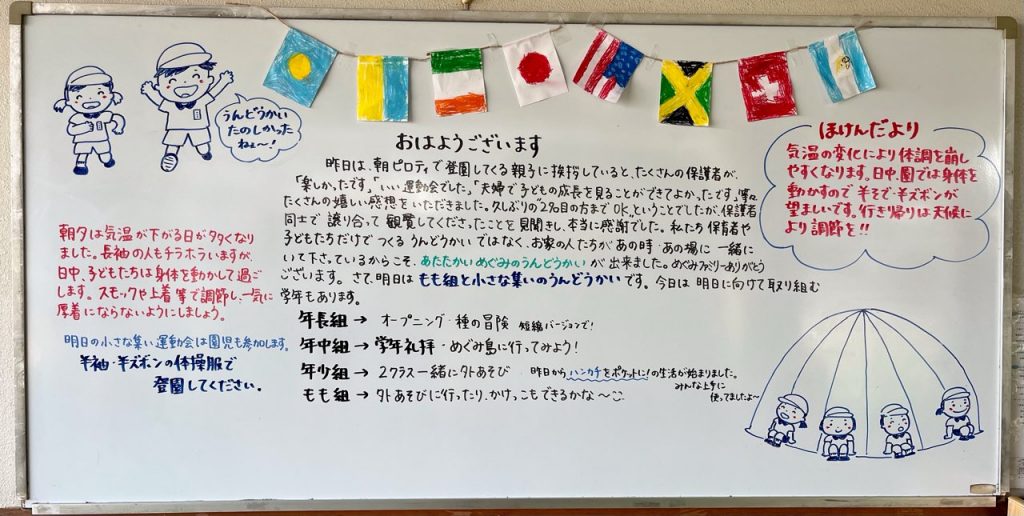 うんどうかい
たのしかった
ねぇ〜!
おはようございます
昨日は、朝ピロティで登園してくる親子に挨拶していると、たくさんの保護者が、
「楽しかったです」「いい運動会でした」「夫婦で子どもの成長を見ることができてよかったです」等々
たくさんの嬉しい感想をいただきました。久しぶりの"2名目の方までOK"ということでしたが、保護者
同士で譲り合って観覧してくださったことを見聞きし、本当に感謝でした。私たち保育者や
子どもたちだけでつくるうんどうかいではなく、お家の人たちがあの時・あの場に一緒に
いて下さっているからこそ、あたたかいめぐみのうんどうかいが出来ました。めぐみファミリーありがとう
ございます。さて、明日はもも組と小さな集いのうんどうかいです。今日は明日に向けて取り組む
学年もあります。
年長組→オープニング・種の冒険 短縮バージョンで!
年中組→学年礼拝・めぐみ島に行ってみよう!
年少組→2クラス一緒に外あそび 昨日からハンカチをポケットに!の生活が始まりました。
みんな上手に
使ってましたよ〜
もも組→外あそびに行ったり、かけっこもできるかな〜
朝夕は気温が下がる日が多くなり
ました。長袖の人もチラホラいますが、
日中、子どもたちは身体を動かして過ご
します。スモックや上着等で調節し、一気に
厚着にならないようにしましょう。
明日の小さな集い運動会は園児も参加します。
半袖・半ズボンの体操服で
登園してください。
ほけんだより
気温の変化により体調を崩し
やすくなります。日中、園では身体を
動かすので半そで・半ズボンが
望ましいです。行き帰りは天候に
より調節を!!